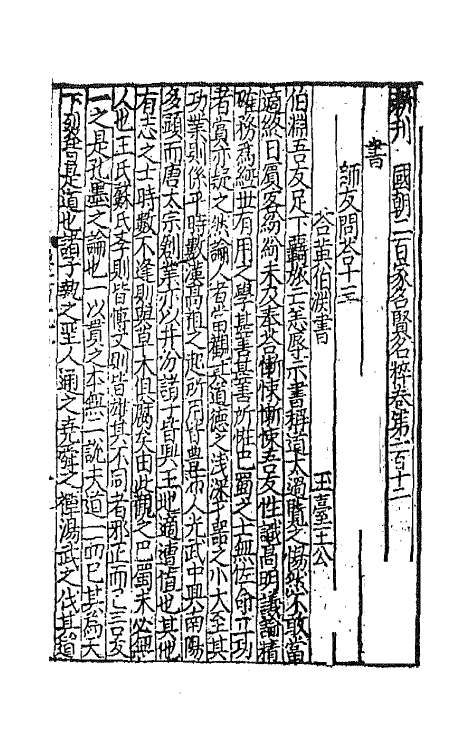 新刊國朝二百家名賢文粹卷第一百十二
書
師友問答十三
答黃伯淵書 玉臺王公
伯淵吾友足下 蒙 恙辱示書稱道太過覽之惕然不敢當
適終日賓客紛紛未及奉答慚悚慚悚吾友性識高明議論精
確務為經世有用之學甚善甚善所恠巴蜀之士無佐命立功
者嘗亦疑之然論人者當觀其道德之淺深才器之小大至其
功業則係乎時數漢高祖之起所用皆豊沛人光武中興南陽
多顯而唐太宗創業亦以并汾諸士皆興王地適遭值也其他
有志之士時數不逢則與草木俱腐矣由此觀之巴蜀未必無
人也王氏蘇氏李則皆博文則皆雄其不同者邪正而已吾友
一之是孔墨之論也一以貫之本無二說夫道一而已其為天
下烈 是道也諸子執之聖人通之堯舜之禪湯武之伐其道